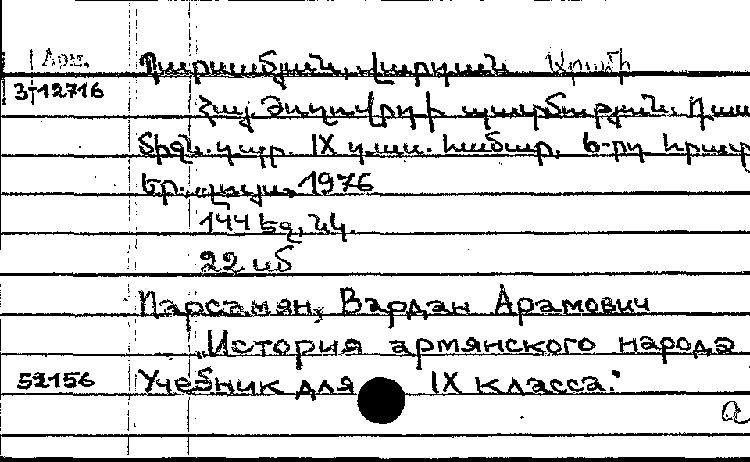 Арм.
Պարսամյան, Վարդան Արամի
3-12716
Հայ Ժողովրդի պատմություն. Դաս
միջն. դպր. IX դաս. համար. 6-րդ հրատ
Եր. «Լույս» 1976
144 եզ. նկ.
22 սմ
Парсамян, Вардан Арамович
„История армянского народа
52156 Учебник для IX класса."